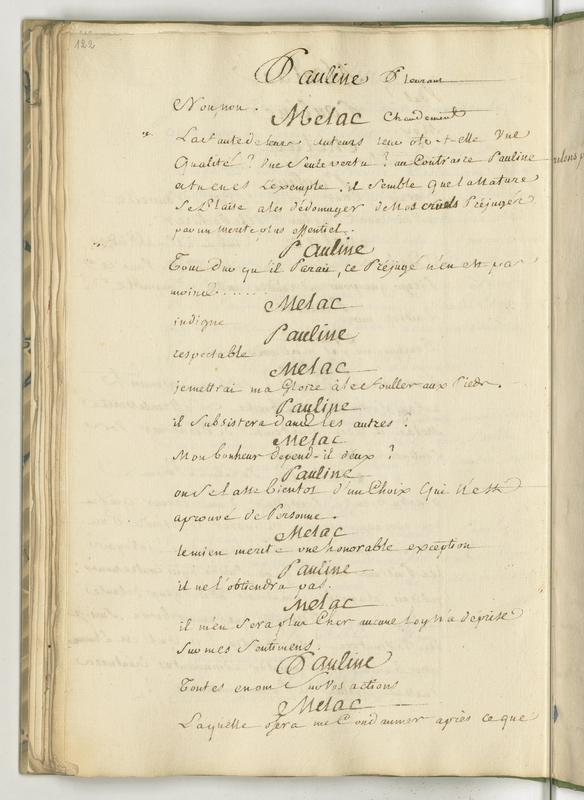 122
Pauline Pleurant
Non, non.
Melac Chaudement
La faute de leurs auteurs leur ote-t-elle Une
Qualité? Une Seule vertu? au Contraire Pauline
et Vous en etes L'exemple. il Semble que la Nature
Se Plaise a les dédomager de Nos cruels Préjugés
par un merite plus essentiel.
Pauline
Tout Dur qu'il Parait, ce Préjugé n'en est pas
moins......
Melac
indigne
Pauline
respectable
Melac
je mettrai ma Gloire à le fouller aux Pieds.
Pauline
il Subsistera dans les autres?
Melac
Mon bonheur depend-il deux?
Pauline
on Se lasse bientos d'un Choix Qui N'est
aprouvé de Personne.
Melac
le mien merite une honorable exception
Pauline
il ne l'obtiendra pas.
Melac
il m'en Sera plus Cher aucune Loy N'a de prise
Sur mes Sentimens.
Pauline
Toutes en ont Sur Vos actions
Melac
Laquelle osera me Condamner après ce que